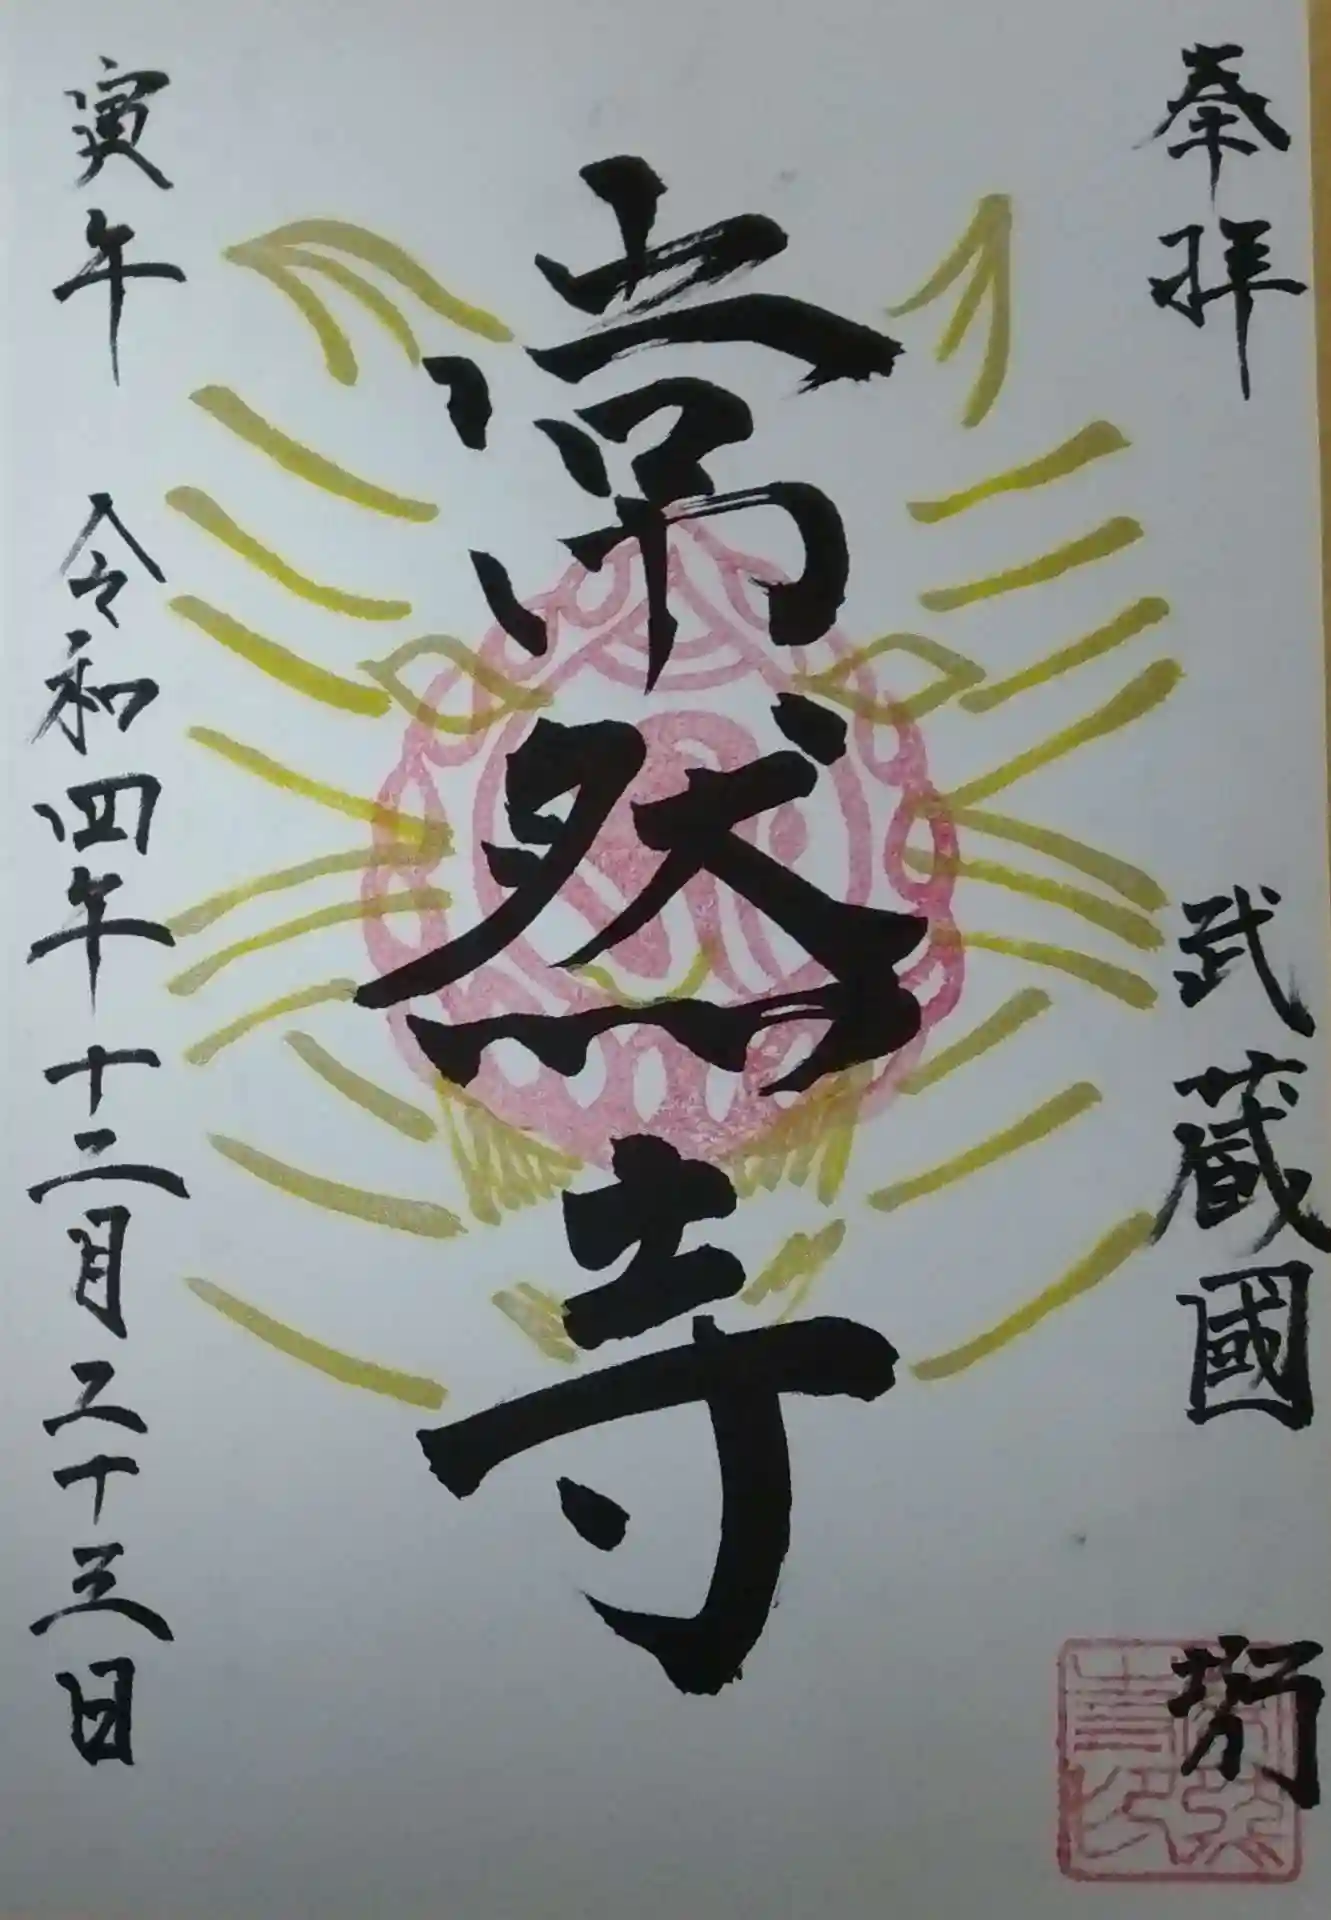 奉拝
武蔵國
常然寺
寅年 令和四年十二月二十三日